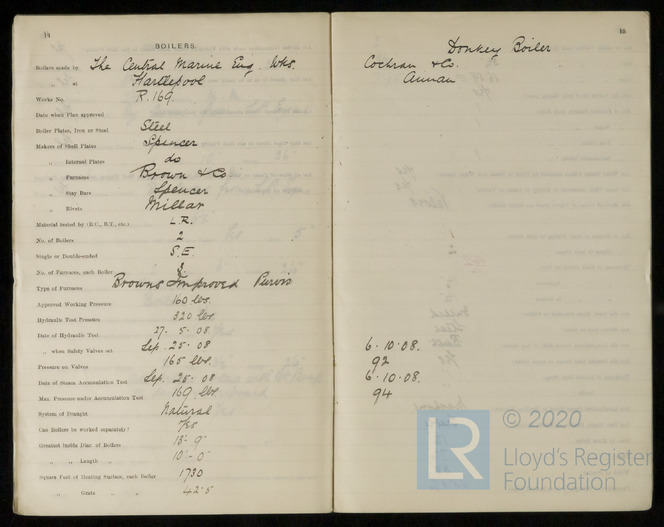 14
BOILERS.
Boilers made by The Central Marine Eng. Wks.
„ at Hartlepool
Works No. R.169.
Date when Plan approved
Boiler Plates, Iron or Steel Steel
Makers of Shell Plates Spencer
„ Internal Plates do
„ Furnaces Brown & Co
„ Stay Bars Spencer
„ Rivets Millar
Material tested by (B.C., B.T., etc.) L.R.
No. of Boilers 2
Single or Double-ended S.E.
No. of Furnaces, each Boiler
Type of Furnaces Browns Improved Purvis
Approved Working Pressure 160 lbs.
Hydraulic Test Pressure 320 lbs.
Date of Hydraulic Test 27. 5. 08
„ when Safety Valves set Sep. 25. 08
Pressure on Valves 165 lbs.
Date of Steam Accumulation Test Sep. 25. 08
Max. Pressure under Accumulation Test 169 lbs.
System of Draught Natural
Can Boilers be worked separately? Yes
Greatest Inside Diam. of Boilers 13'-9"
„ „ Length „ 10'-0"
Square Feet of Heating Surface, each Boiler 1730
„ Grate „ „ 42.5
15
Donkey Boiler
Cochran & Co.
Annan
6.10.08.
92
6.10.08.
94
LR
© 2020
Lloyd's Register
Foundation